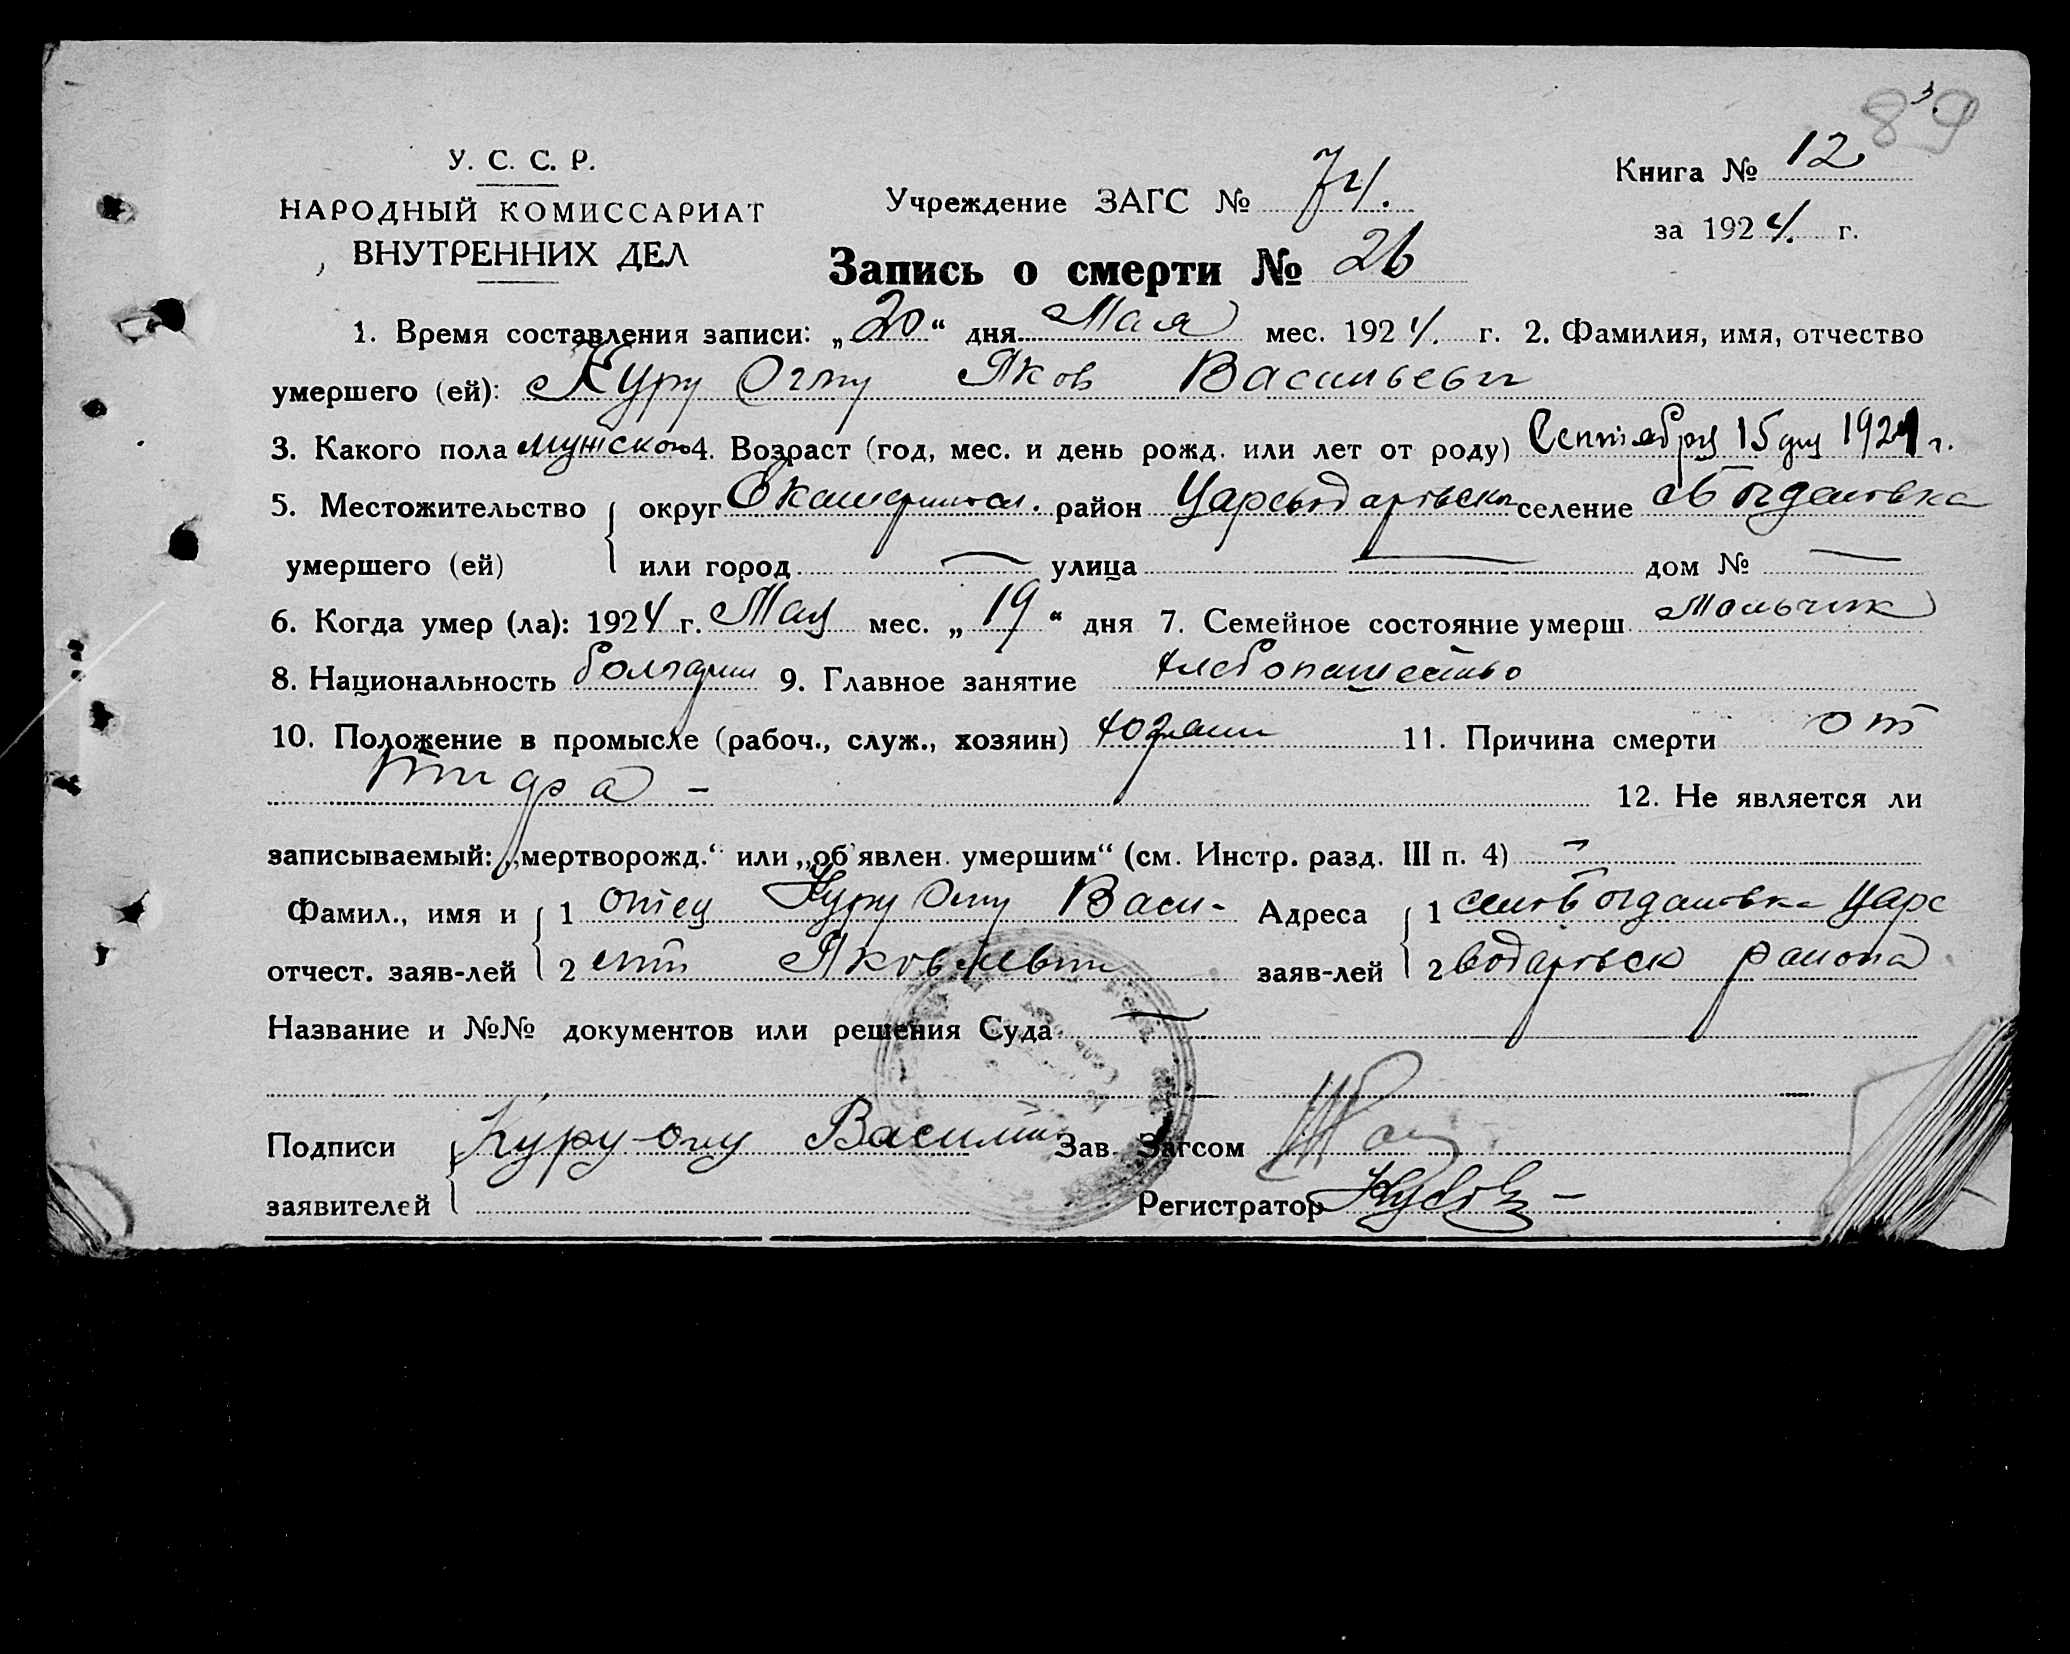 89
У. С. С. Р.
НАРОДНЫЙ КОМИССАРИАТ
ВНУТРЕННИХ ДЕЛ
Учреждение ЗАГС № 74.
Книга № 12
за 1924. г.
Запись о смерти № 26
1. Время составления записи: „20“ дня Мая мес. 1924. г. 2. Фамилия, имя, отчество
умершего (ей): Куру Оглу Яков Васильевич
3. Какого пола мужского 4. Возраст (год, мес. и день рожд. или лет от роду) Сентября 15 дня 1921 г.
5. Местожительство округ район Царсводаровск селение Богдановка
умершего (ей) или город — улица — дом № —
6. Когда умер (ла): 1924 г. Мая мес. „19“ дня 7. Семейное состояние умерш. Мальчик
8. Национальность болгарин 9. Главное занятие хлебопашество
10. Положение в промысле (рабоч., служ., хозяин) хозяин 11. Причина смерти от
тифа – 12. Не является ли
записываемый: „мертворожд.“ или „об'явлен умершим“ (см. Инстр. разд. III п. 4) –
Фамил., имя и 1 отец Куру Оглу Васи- Адреса 1 село Богдановка Царс
отчест. заяв-лей 2 Яковлевич заяв-лей 2 водаровск района
Название и №№ документов или решения Суда —
Подписи Куру-Оглу Василий Зав. Загсом
заявителей Регистратор